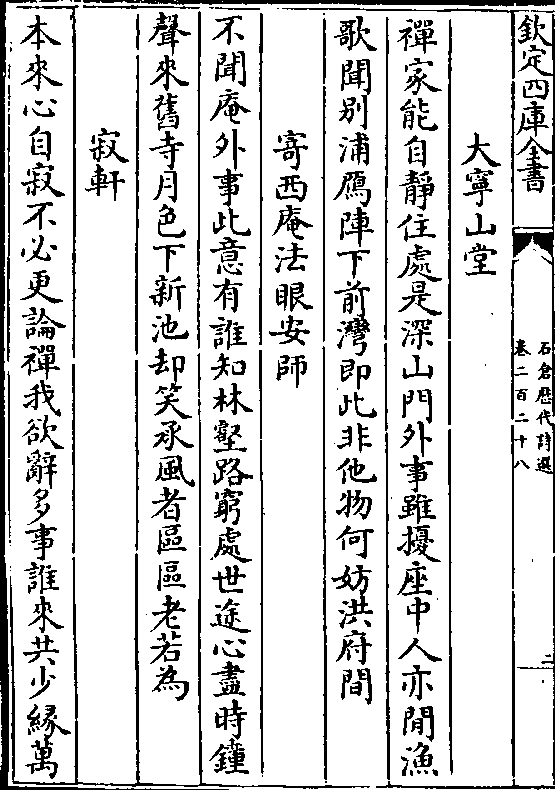 欽定四庫全書
石倉歷代詩選
卷二百二十八
二
大寧山堂
禪家能自靜住處是深山門外事雖擾座中人亦閒漁
歌聞别浦鴈陣下前灣即此非他物何妨洪府間
寄西庵法眼安師
不聞庵外事此意有誰知林壑路窮處世途心盡時鐘
聲來舊寺月色下新池却笑承風者區區老若為
寂軒
本來心自寂不必更論禪我欲辭多事誰來共少緣萬